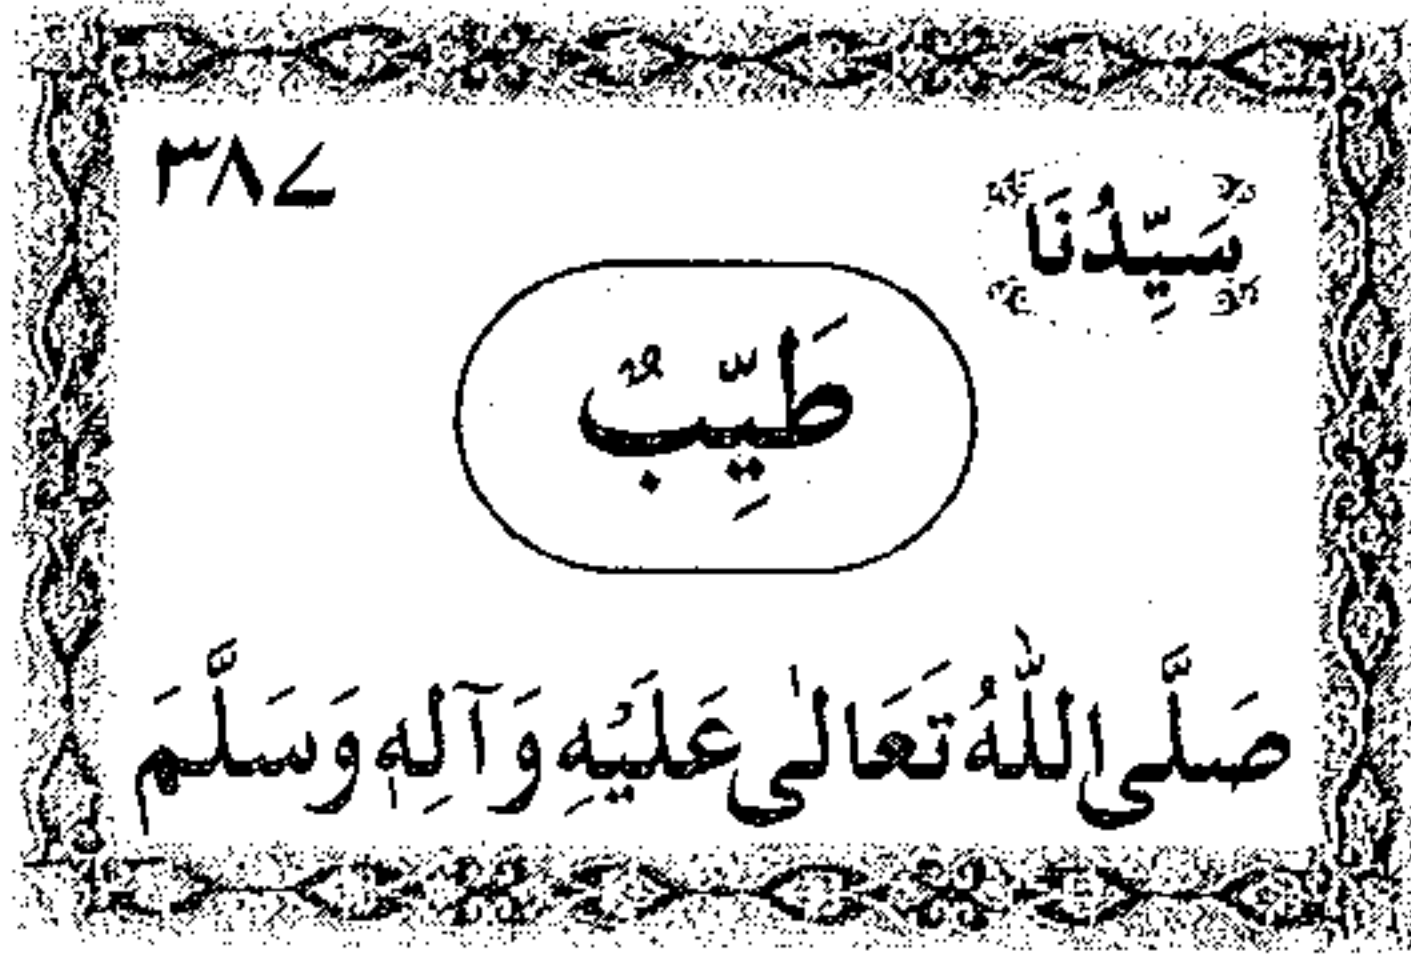 ۳۸۷
سَيِّدُنَا
طَيِّبٌ
صَلَّى اللّٰهُ تَعَالٰى عَلَيْهِ وَآلِهٖ وَسَلَّمَ